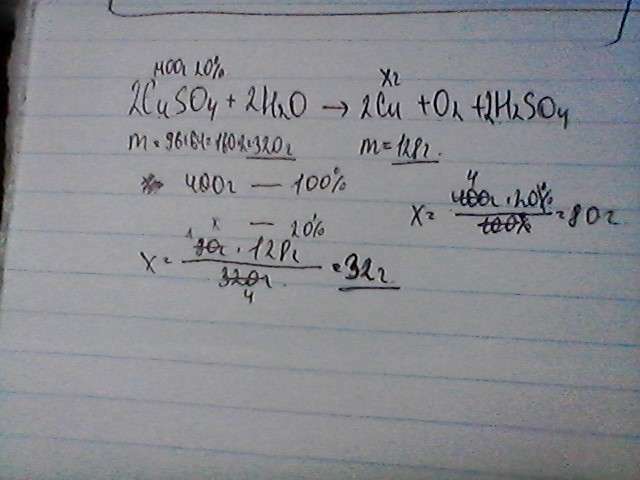 400г 20% Xг
2CuSO4 + 2H2O → 2Cu + O2 + 2H2SO4
m = 96+64=160·2=320г m = 128г.
400г — 100%
x — 20% X = 400г · 20% / 100% = 80г 4
X = 80г · 128г / 320г = 32г 1 4